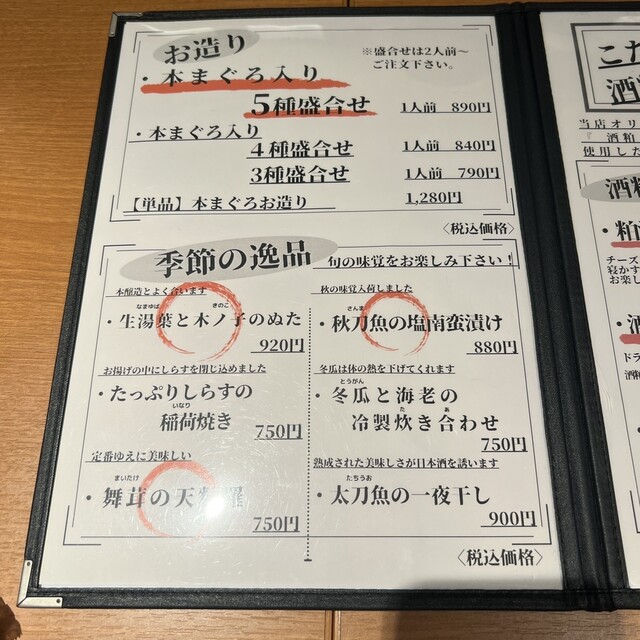 お造り
※盛合せは2人前〜
ご注文下さい。
・本まぐろ入り
5種盛合せ 1人前 890円
・本まぐろ入り
4種盛合せ 1人前 840円
3種盛合せ 1人前 790円
【単品】本まぐろお造り 1,280円
〈税込価格〉
季節の逸品 旬の味覚をお楽しみ下さい！
本醸造とよく合います
なまゆば きのこ
・生湯葉と木ノ子のぬた
920円
お揚げの中にしらすを閉じ込めました
・たっぷりしらすの
いなり
稲荷焼き
750円
定番ゆえに美味しい
まいたけ
・舞茸の天麩羅
750円
秋の味覚入荷しました
さんま
・秋刀魚の塩南蛮漬け
880円
冬瓜は体の熱を下げてくれます
とうがん
・冬瓜と海老の
た あ
冷製炊き合わせ
750円
熟成された美味しさが日本酒を誘います
たちうお
・太刀魚の一夜干し
900円
〈税込価格〉
こだ
酒
当店オリ
『 酒粕
使用した
酒粕
・粕
チーズ
寝かす
お楽し
・酒
ドラ
酒粕